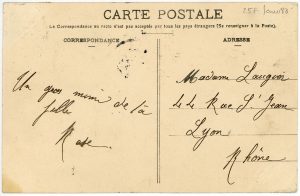 CARTE POSTALE
La Correspondance au recto n'est pas acceptée par tous les pays étrangers (Se renseigner à la Poste).
CORRESPONDANCE
ADRESSE
Un gros mimi de ta
fille
Madame Laugier
Rue St Jean
Lyon
Rhône